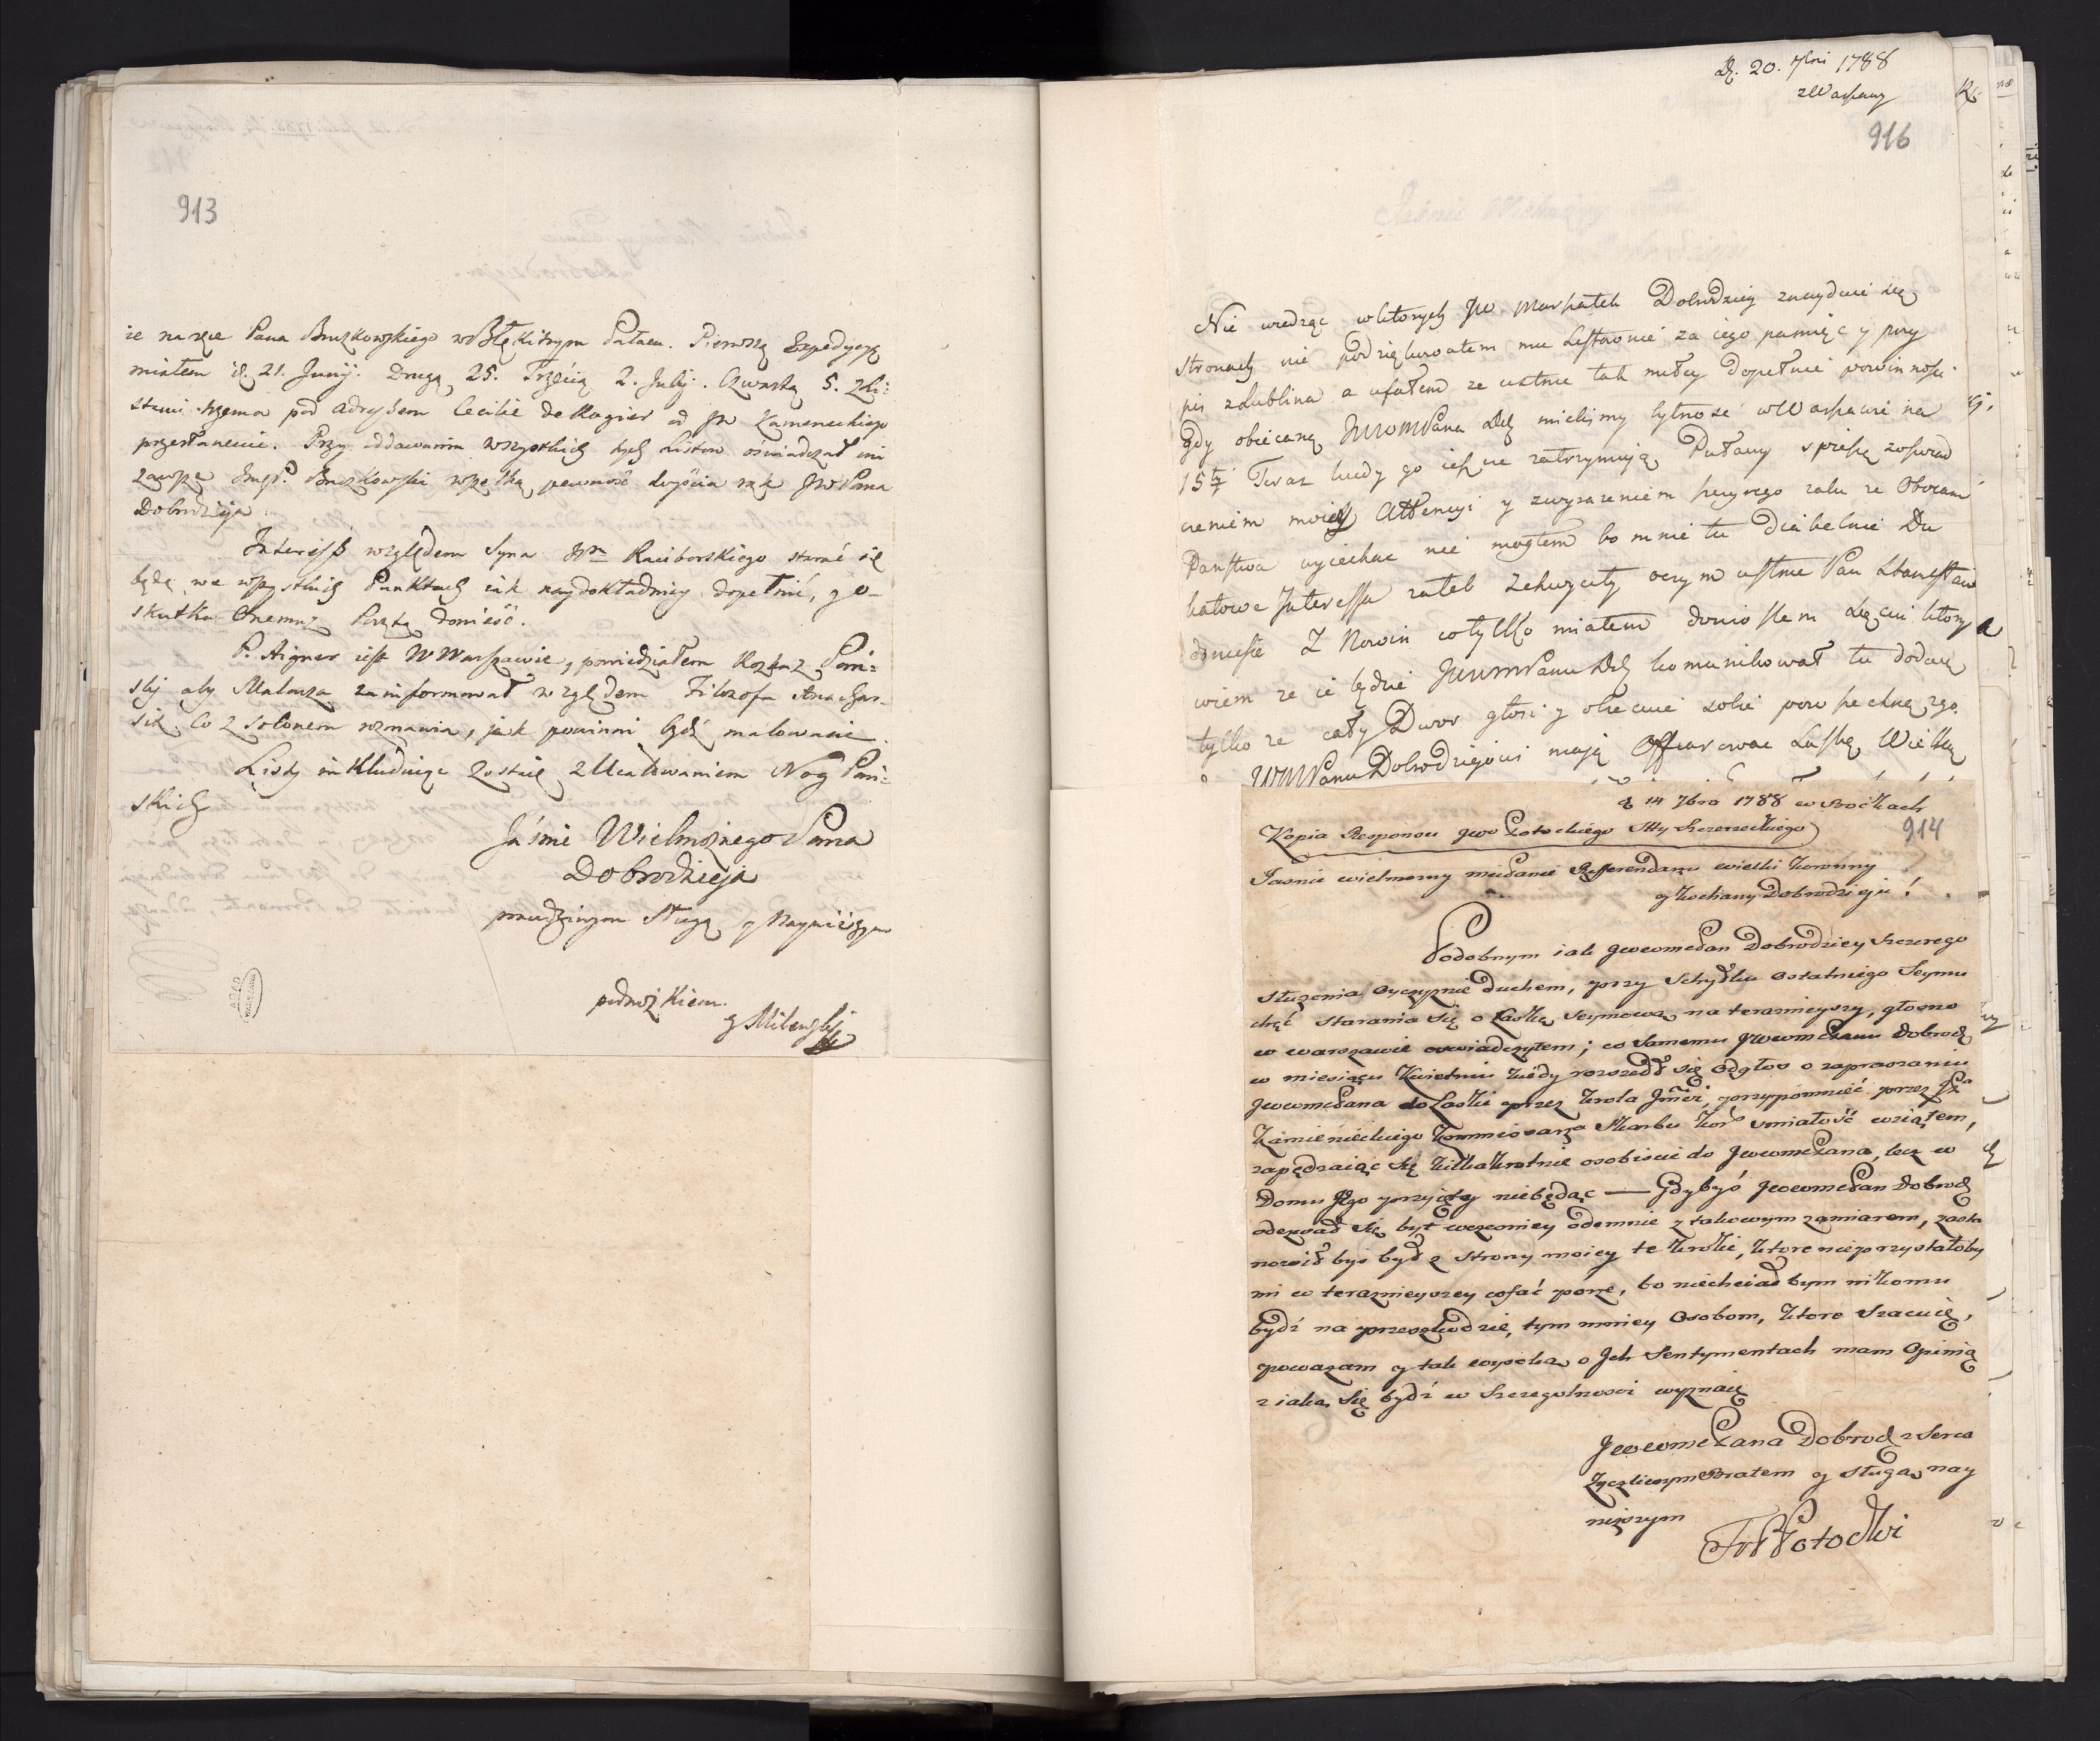 913
ie na ręce Pana Bruszkowskiego w Błękitnym Pałacu. Pierwszą Expedycyę
miałem d. 21. Junij. Drugą 25. Trzecią 2. Julij. Czwartą 5. z Li-
stami trzema pod adressem Cecilie de Kagier od JW Kameneckiego
przesłanemi. Przy oddawaniu wszystkich tych Listow oświadczał mi
zawsze Imć P. Bruszkowski wszelką pewność doyścia rąk JWPana
Dobrodzieja
Interess względem Syna Jpn Raciborskiego starać się
będę we wszystkich Punktach iak naydokładniey dopełnić, y o
skutku onemuz Piszę donieść.
P. Aigner iest w Warszawie, powiedziałem Rozkaz Pań-
ski aby Malarza zainformował względem Filozofa Anachar-
sis. Co z Solonem rozmawia, jak powinni bydź malowani.
Listy inkludując zostaię z Ucałowaniem Nog Pań-
skich
Jaśnie Wielmożnego Pana
Dobrodzieja
prawdziwym Sługą y Nayniższym
podnożkiem
G Milewski
D. 20. 7bri 1788
z Warszawy
916
Nie wiedząc w ktorych JW Marszałek Dobrodziey znayduie się
stronach nie podziękowałem mu Listownie za iego pamięć y przy
pis z Lublina a ufałem ze ustnie tak miłey dopełnie powinnosci
gdy obiecaną JWWMPana Dob mieliśmy bytnosc w Warszawie na
15 7 Teraz kiedy go ieszcze zatrzymują Puławy spieszę z oswiad
czeniem moiey Attencyi y z wyrazeniem szczyrego zalu ze Obocam
Panstwa wyiechac nie mogłem bo mnie tu diabelnie Du
katowe Interessa zaległ o czym ustnie Pan
doniesie Z Nowin co tylko miałem doniosłem ktory
wiem ze ie będzie JWWMPanu Dob komunikował tu dodaię
tylko ze cały Dwor głosi y obiecuie sobie powszechnę zgo
WMPanu Dobrodziejowi mają Offiarowac Laskę Wielką
d 14 7bra 1788 w Srockach
914
Kopia Responsu JWo Potockiego Stty Szczerzeckiego
Jasnie wielmozny mci Panie Refferendarzu wielki koronny
y kochany Dobrodzieju!
Podobnym iak JWWMPan Dobrodziey szczerego
służenia oyczyznie duchem, przy schyłku ostatniego Seymu
chęć starania się o Laskę seymową na teraznieyszy, głosno
w warszawie oswiadczyłem; co samemu JWWMPanu Dobrodz
w miesiącu Kwietniu kiedy rozszedł się odgłos o zapraszaniu
JWWMPana do Laski przez Krola Jmci, przypomnieć przez JPa
Kamienieckiego Kommissarza Skarbu Kor smiałość wziąłem,
zapędzaiąc się kilkakrotnie osobiscie do JWWMPana, lecz w
Domu Jego przyięty niebędąc — Gdybyś JWWMPan Dobrodz
odezwał się był wczesniey odemnie z takowym zamiarem, zasta
nowił byś był z strony moiey te kroki, ktore nieprzystałoby
mi w teraznieyszey cofać porze, bo niechciał bym nikomu
bydź na przeszkodzie, tym mniey Osobom, ktore szacuię,
poważam y tak wysoką o Jch Sentymentach mam Opinią
z iaką się bydź w szczegulnosci wyznaię
JWWMPana Dobrodz z serca
Zyczliwym Bratem y sługą nay
nizszym
Potocki